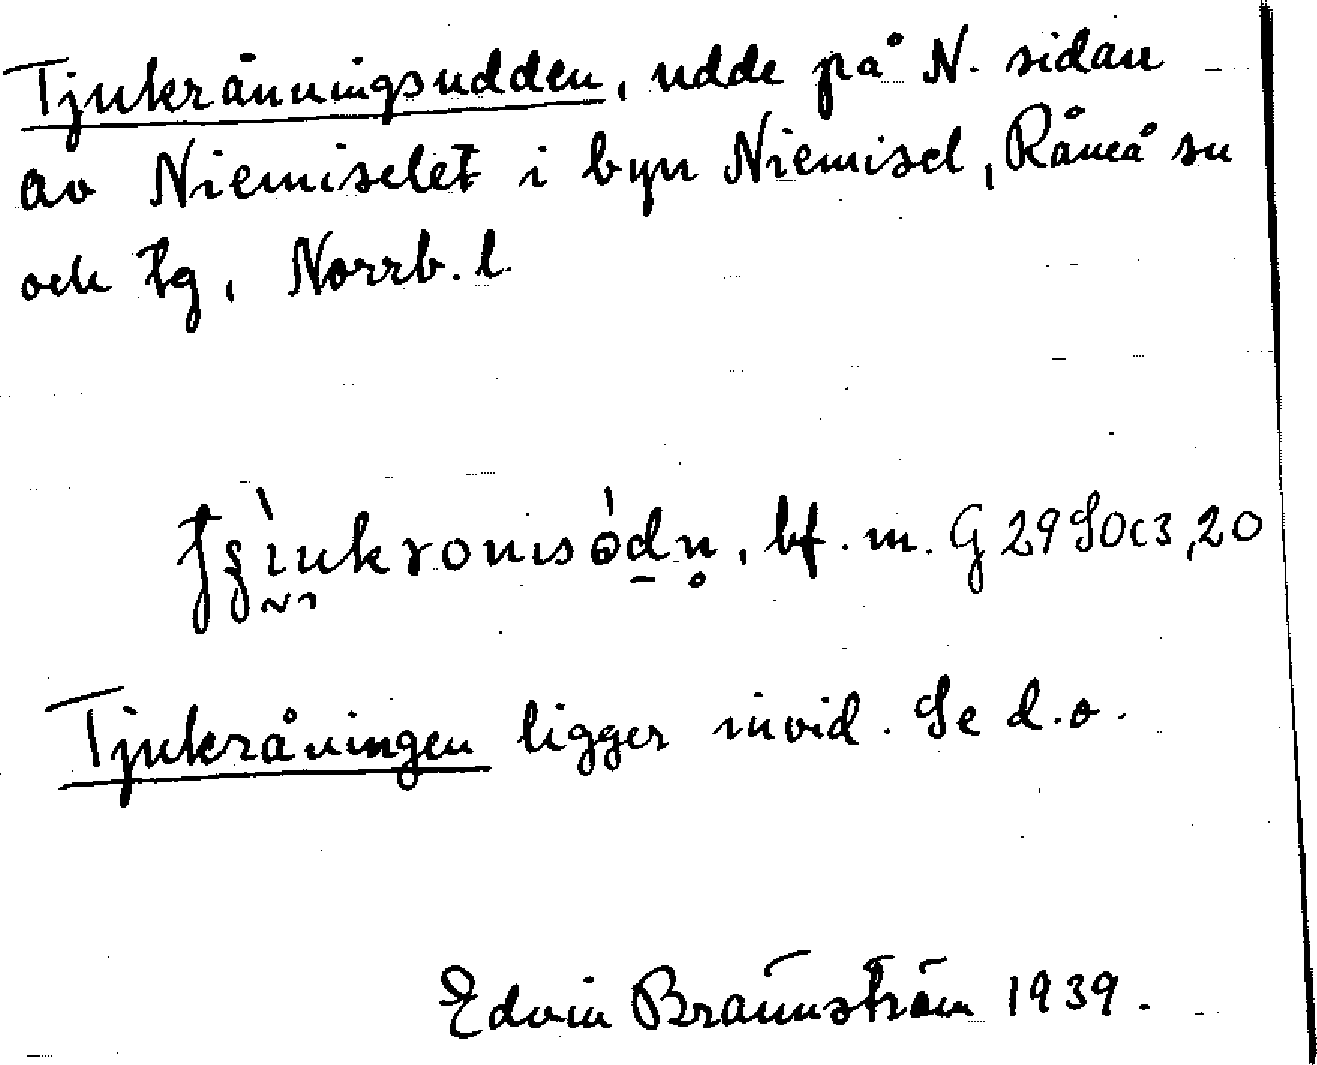 Tjukråningsudden, udde på N. sidan
av Niemiselet i byn Niemisel, Råneå sn
och tg, Norrb. l.
bf. m. G 29 SO c3, 20
Tjukråningen ligger invid. Se d.o.
Edvin Brännström 1939.